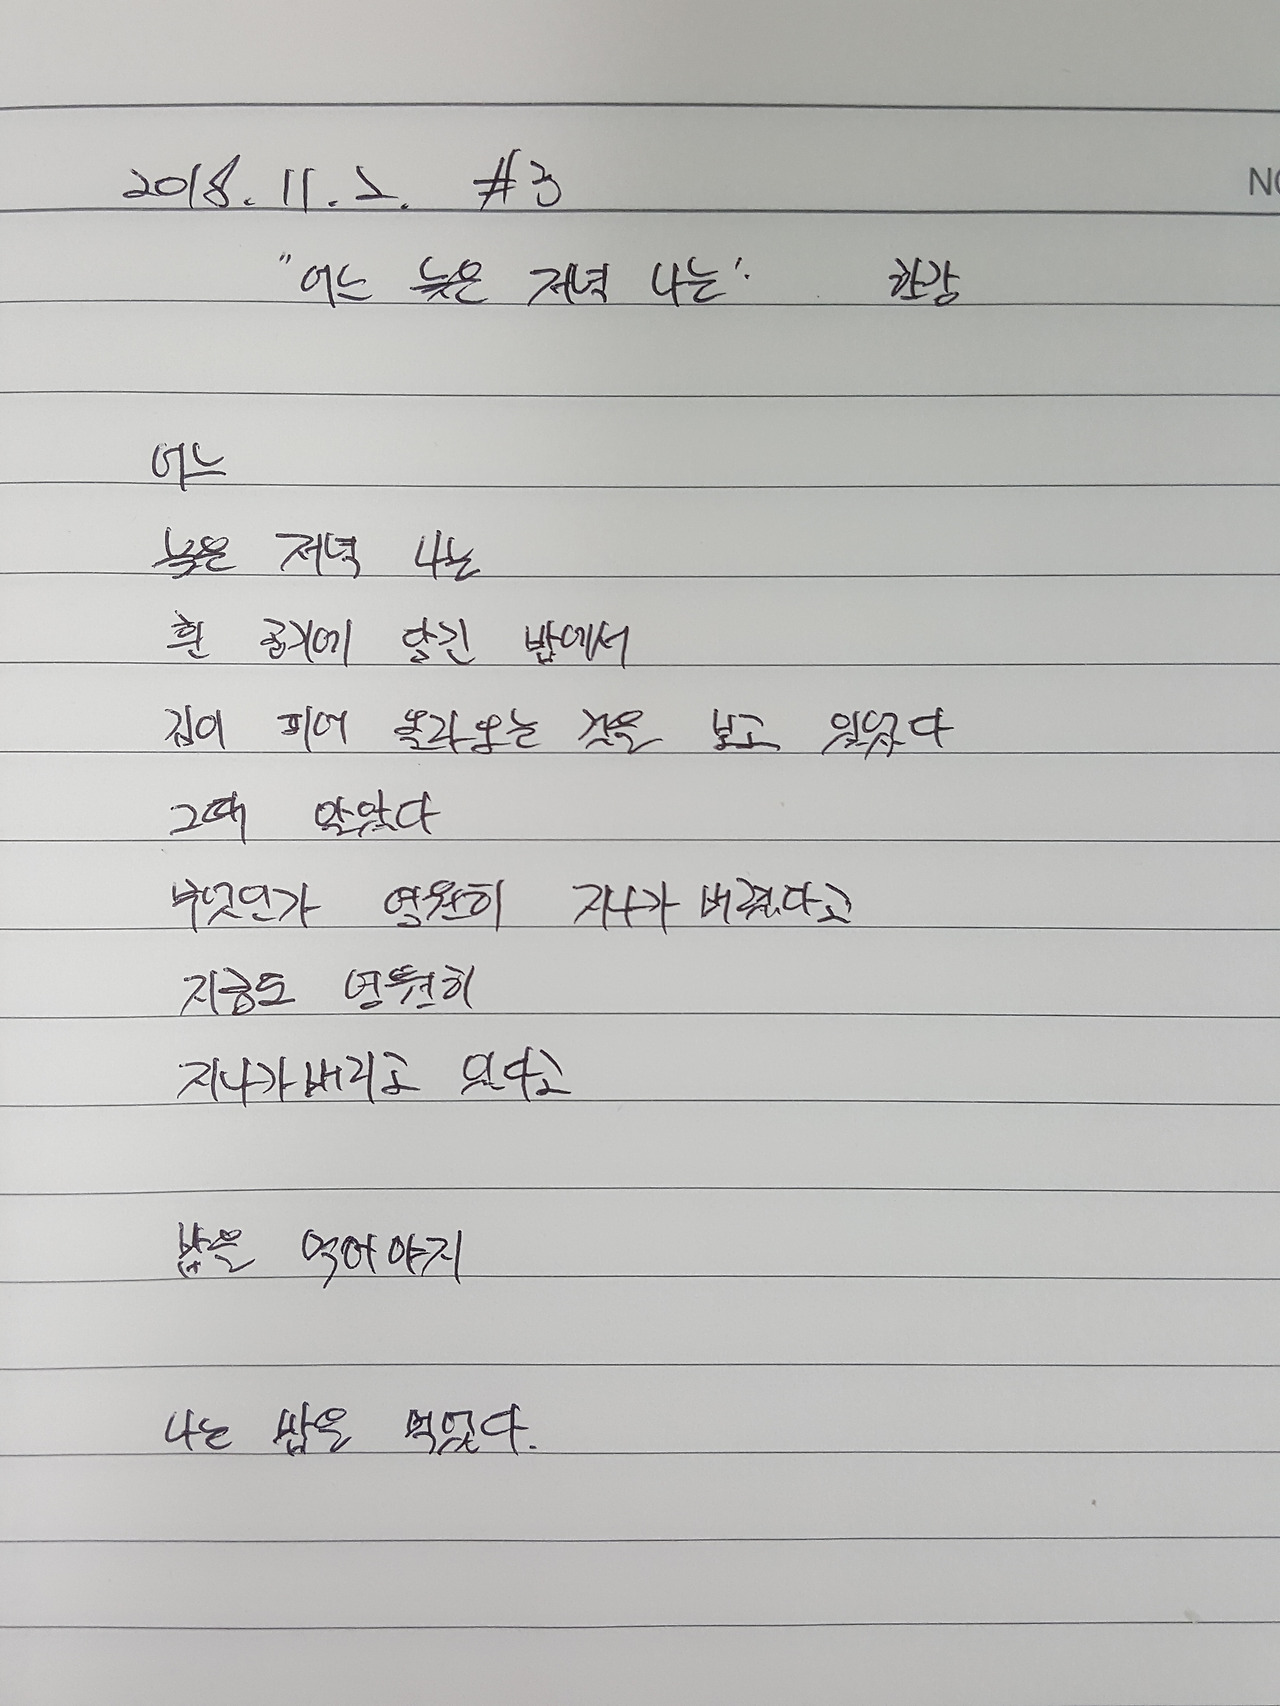 2018.11.2. #3
NO
"어느 늦은 저녁 나는" 한강
어느
늦은 저녁 나는
흰 공기에 담긴 밥에서
김이 피어 올라오는 것을 보고 있었다
그때 알았다
무엇인가 영원히 지나가 버렸다고
지금도 영원히
지나가버리고 있다고
밥을 먹어야지
나는 밥을 먹었다.